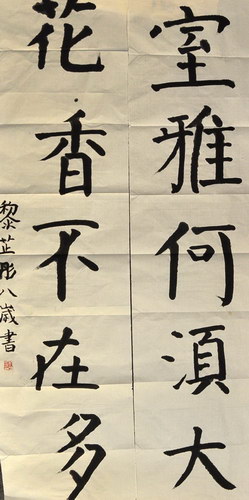 室雅何須大
花香不在多
黎芷彤八歲書